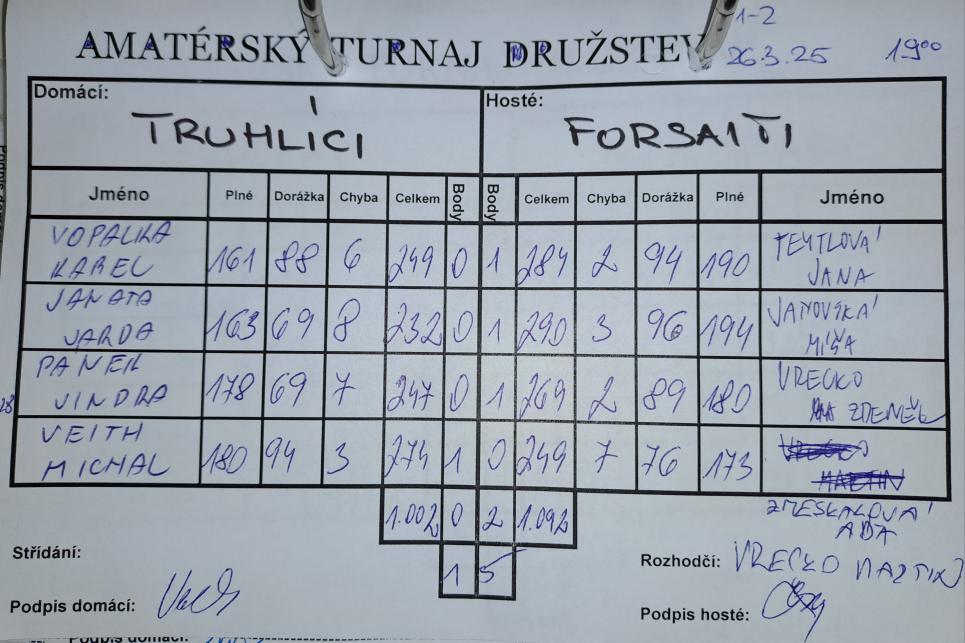 1-2
AMATÉRSKÝ TURNAJ DRUŽSTEV 26.3.25 19⁰⁰
Domácí: Hosté:
TRUHLÍCI FORSAITI
Jméno Plné Dorážka Chyba Celkem Body Body Celkem Chyba Dorážka Plné Jméno
VOPALKA KAREL 161 88 6 249 0 1 284 2 94 190 TEYTLOVÁ JANA
JANATA JARDA 163 69 8 232 0 1 290 3 96 194 JANOVSKÁ MÍŠA
PANEK JINDRA 178 69 7 247 0 1 269 2 89 180 VRECKO ZDENĚK
VEITH MICHAL 180 94 3 274 1 0 249 7 76 173
ZMESKALOVÁ ADA
1.002 0 2 1.092
1 5
Střídání:
Rozhodčí: VRECKO MARTIN
Podpis domácí:
Podpis hosté:
Podpis domácí: